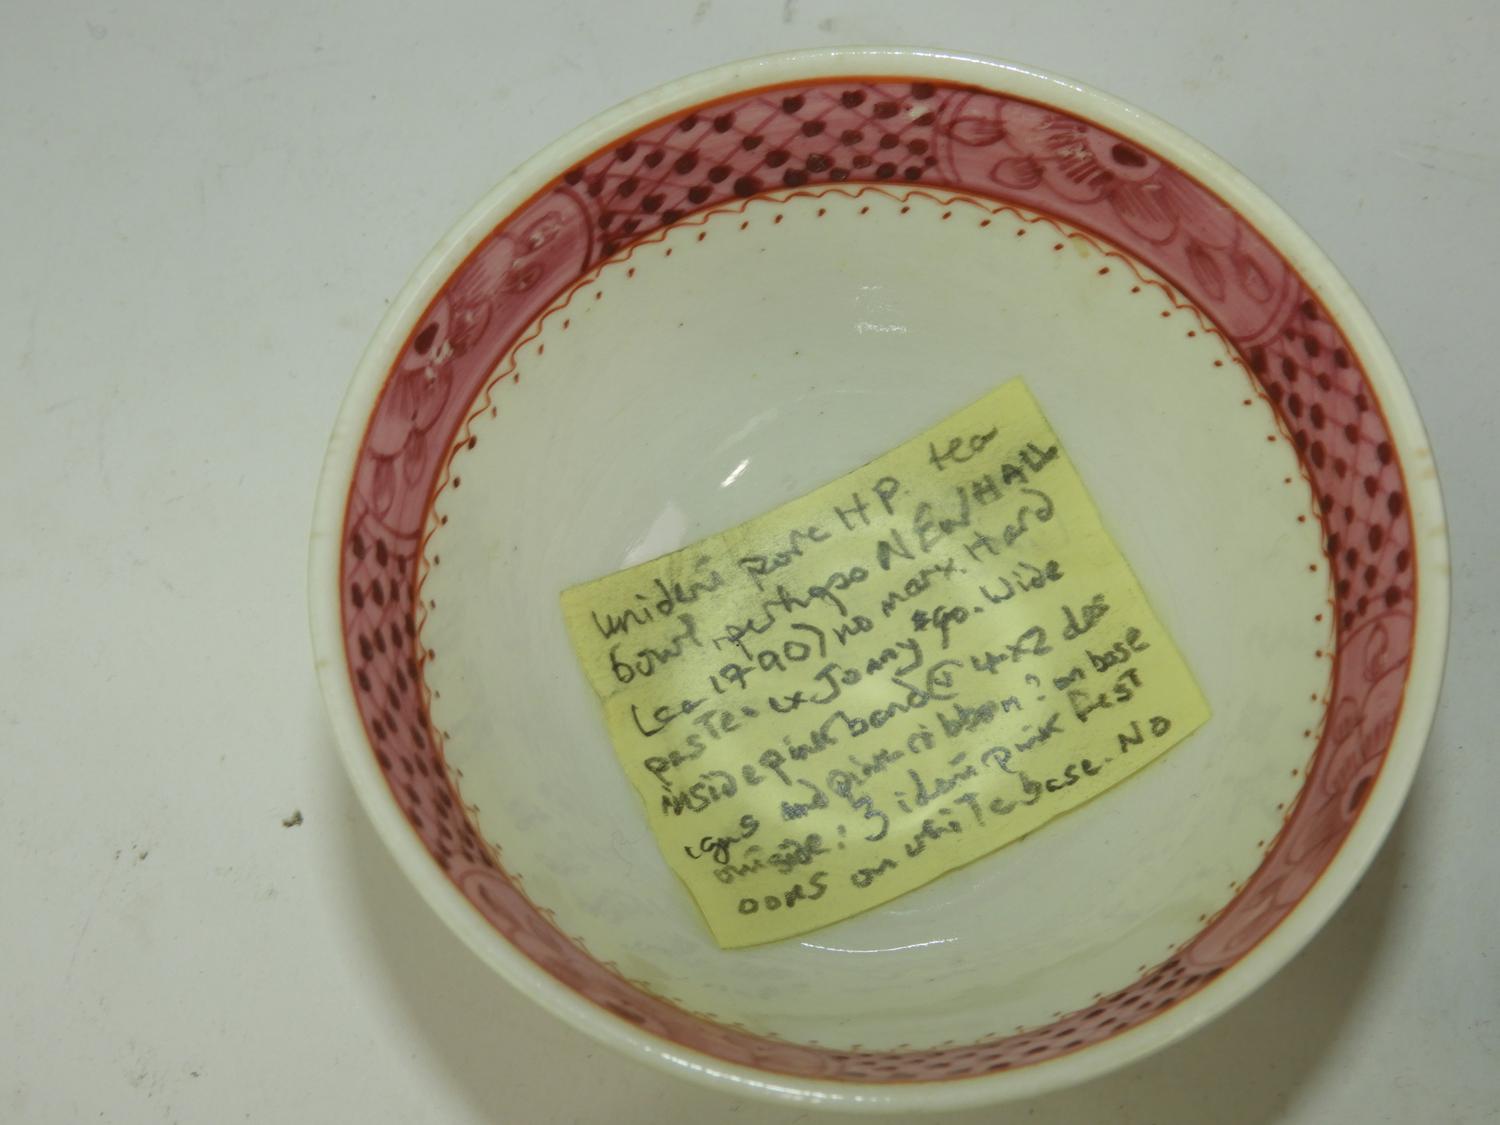 unident porc HP. tea
bowl, perhaps NEWHALL
(ca 1790) no mark. Hard
paste. ex Jonny 90. Wide
inside pink band 4x2 des
igns and pink ribbon? on base
outside: 3 ident pink FEST
OONS on white base. NO